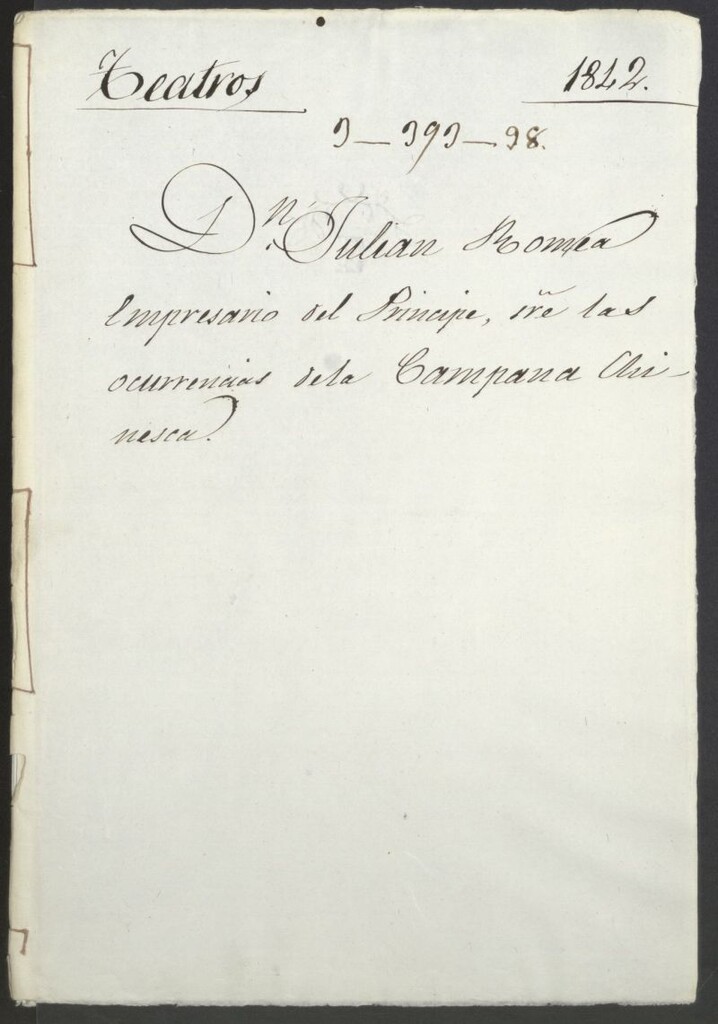 Teatros 1842.
3—393—98.
Dn. Julian Romea
Empresario del Principe, sre las
ocurrencias dela Campana Chi-
nesca.